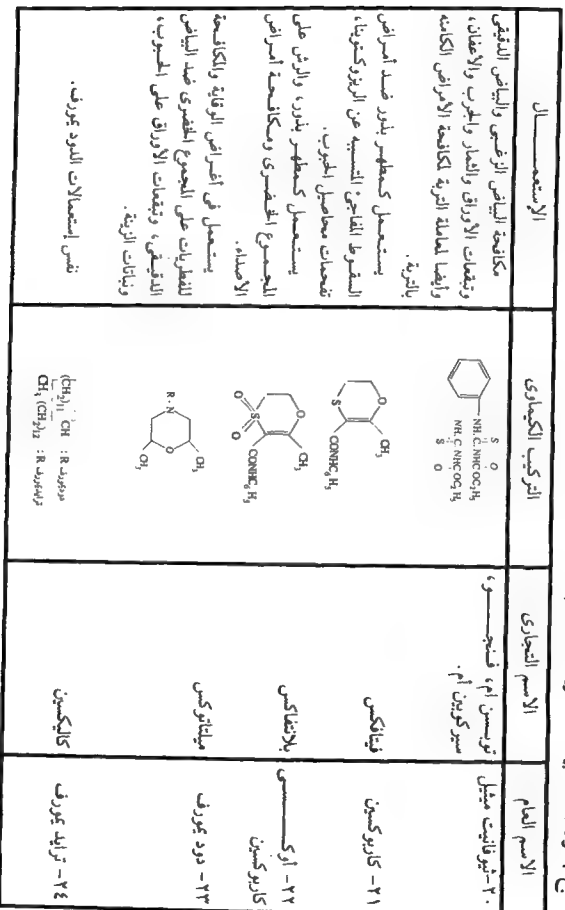 الاسم العام
الاسم التجارى
التركيب الكيماوى
الإستعمـــــال
٢٠- ثيوفانيت ميثيل
توبسن أم، فـنجـــــو،
سيركوبين أم.
S O
NH. C. NHCOC₂H₅
NH. C. NHCOC₂H₅
S O
مكافحة البياض الزغبى والبياض الدقيقى
وتبقعات الأوراق والثمار والجرب والأعفان،
وأيضا لمعاملة التربة لمكافحة الأمراض الكامنه
بالتربة.
٢١- كاربوكسين
فيتافكس
O CH₃
S CONHC₆H₅
يستعـمل كـمطهـر بذور ضـد أمـراض
السقـوط المفاجئ المتسببه عن الريزوكتونيا،
تفحمات محاصيل الحبوب.
٢٢- أوكـــــسى
كاربوكسين
بلانتفاكس
O CH₃
S CONHC₆H₅
O O
يستعمل كـمطهـر بذور، والرش على
المجـموع الخـضرى ومـكافـحـة أمـراض
الاصداء.
٢٣- دود يمورف
ميلتاتوكس
R - N O
CH₃
CH₃
يستعمل فى أغـراض الوقاية والمكافـحة
للفطريات على المجموع الخضرى ضد البياض
الدقيـقى، وتبقعات الأوراق على الحبوب،
ونباتات الزينة.
٢٤- ترايد يمورف
كاليكسين
(CH₂)₁₁ CH : R دوديمورف
CH₃ (CH₂)₁₂ : R ترايديمورف
نفس إستعمالات الدود يمورف.